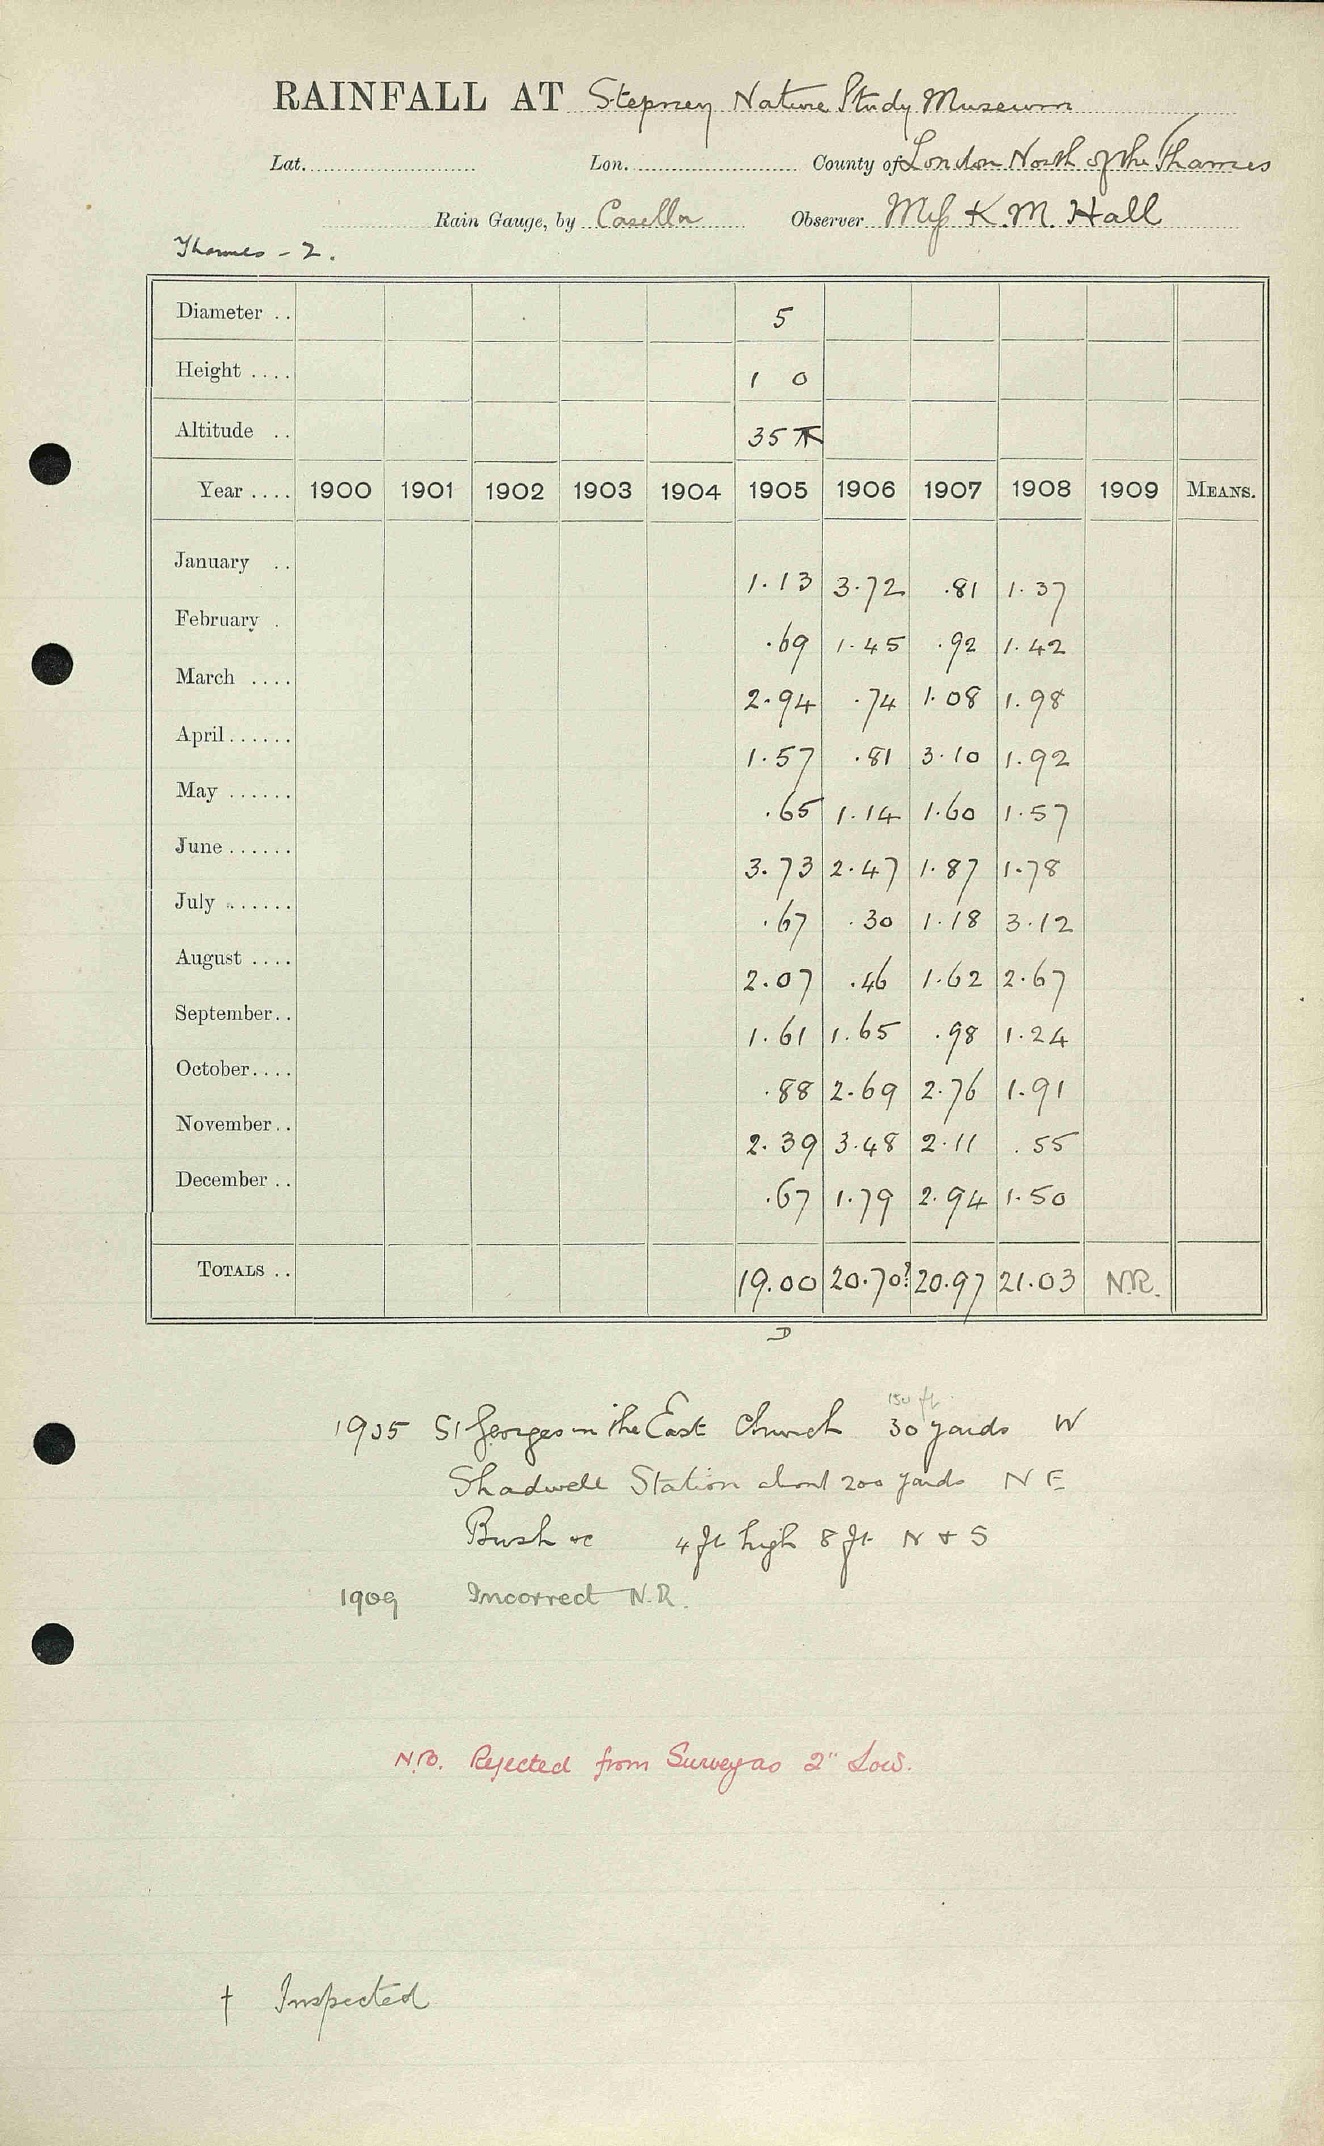 RAINFALL AT Stepney Nature Study Museum
Lat. Lon. County of London North of the Thames
Rain Gauge, by Casella Observer Miss K.M. Hall
Thames - 2.
Diameter .. 5
Height .... 1 0
Altitude .. 35
Year .... 1900 1901 1902 1903 1904 1905 1906 1907 1908 1909 MEANS.
January .. 1.13 3.72 .81 1.37
February . .69 1.45 .92 1.42
March .... 2.94 .74 1.08 1.98
April...... 1.57 .81 3.10 1.92
May ...... .65 1.14 1.60 1.57
June ...... 3.73 2.47 1.87 1.78
July ...... .67 .30 1.18 3.12
August .... 2.07 .46 1.62 2.67
September.. 1.61 1.65 .98 1.24
October.... .88 2.69 2.76 1.91
November.. 2.39 3.48 2.11 .55
December .. .67 1.79 2.94 1.50
TOTALS .. 19.00 20.70? 20.97 21.03 N.R.
D
150 ft
1905 St Georges in the East Church 30 yards W
Shadwell Station about 200 yards N E
Bush &c 4 ft high 8 ft N & S
1909 Incorrect N.R.
N.B. Rejected from Survey as 2" Low.
† Inspected